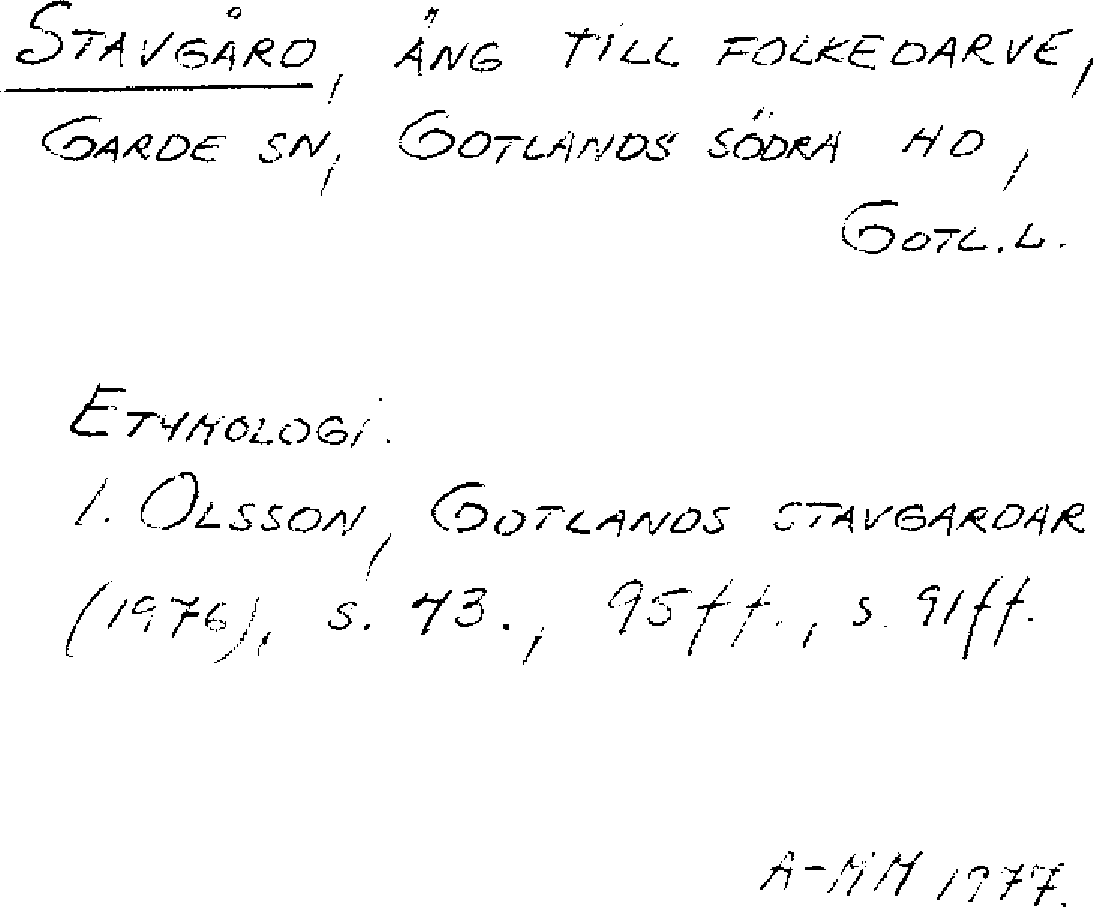 STAVGÅRD, ÄNG TILL FOLKEDARVE,
GARDE SN, GOTLANDS SÖDRA HD,
GOTL.L.
ETYMOLOGI.
I. OLSSON, GOTLANDS STAVGARDAR
(1976), s. 43., 95ff., s. 91ff.
A-MM 1977.